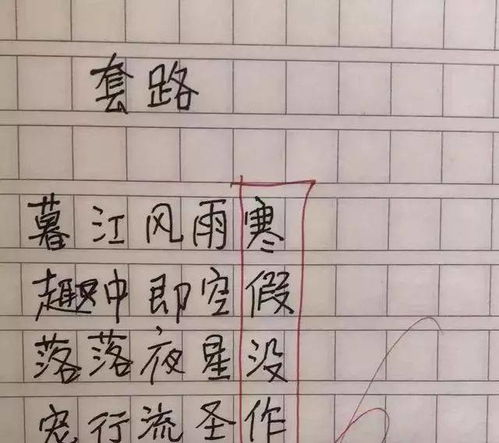 套路
暮江风雨寒
趣中即空假
落落夜星没
宠行流圣作